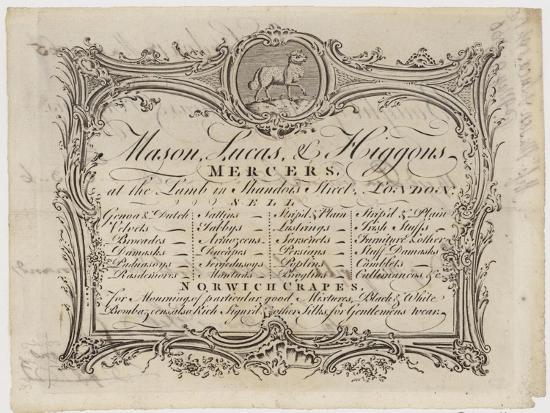 Mason, Lucas, & Higgons
MERCERS,
at the Lamb in Shandois Street, LONDON.
SELL
Genoa & Dutch Sattins Strip'd & Plain Strip'd & Plain
Velvets Tabbys Lustrings Irish Stuffs
Brocades Armozeens Sarsnets Furniture & other
Damasks Ducapes Persians Stuff Damasks
Paduasoys Poplins Cambletts
Rasdemores Mantuas Callimancos &c.
NORWICH CRAPES,
For Mourning, of particular good Mixtures, Black & White
Bombazeens also Rich Figur'd & other Silks for Gentlemens wear.